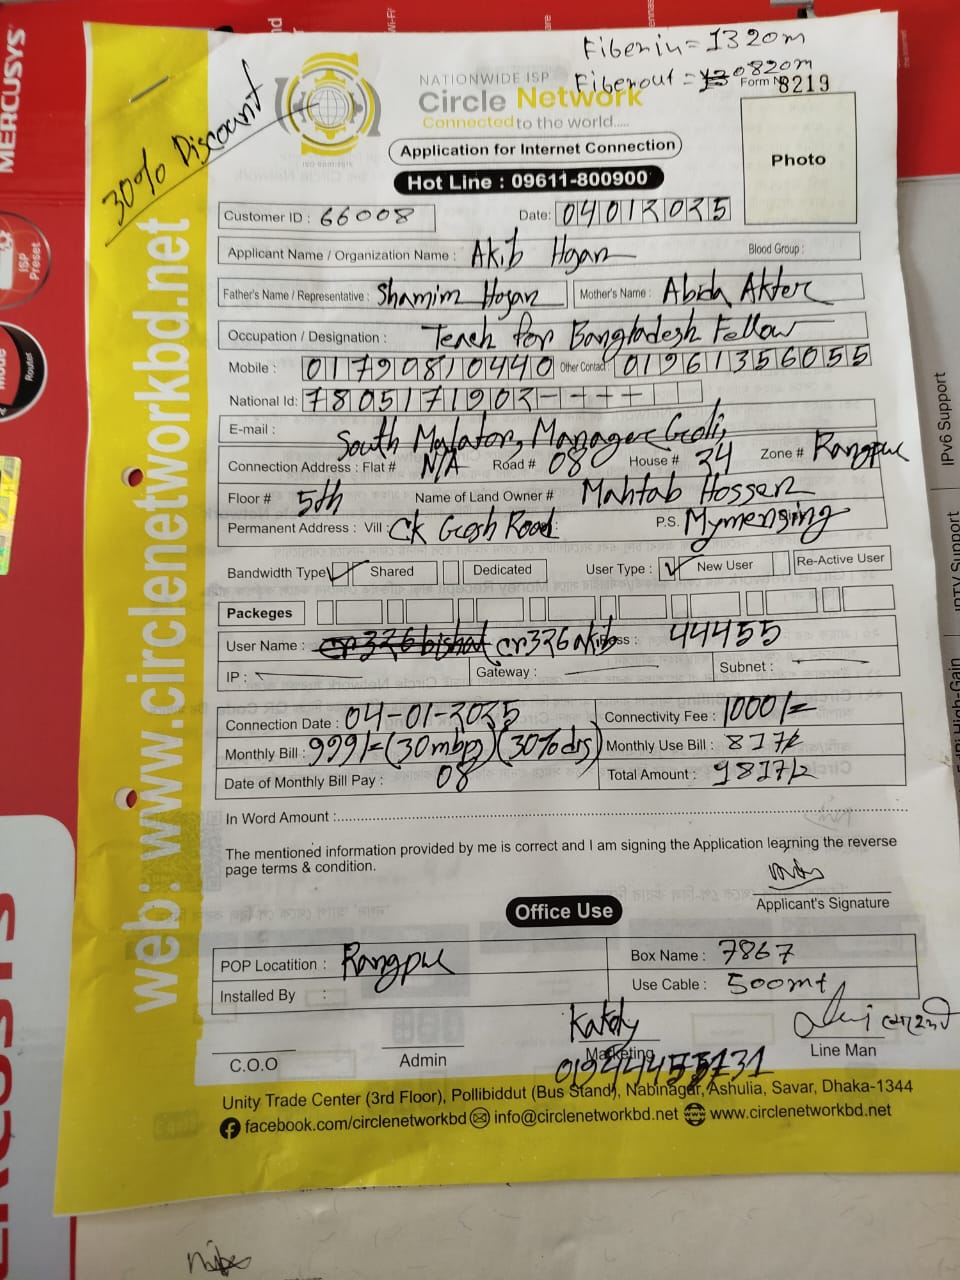 Fiberin = 1320m
Fiberout = 0820m
30% Discount
NATIONWIDE ISP
Form N 8219
Circle Network
Connected to the world.....
Application for Internet Connection
Hot Line : 09611-800900
Photo
Customer ID : 66008 Date: 04012025
Applicant Name / Organization Name : Akib Hosan Blood Group :
Father's Name / Representative : Shamim Hosan Mother's Name : Abida Akter
Occupation / Designation : Teach for Bangladesh Fellow
Mobile : 01790810440 Other Contact : 01961356055
National Id: 7805171902
E-mail :
South Mulator, Manager Goli,
Connection Address : Flat # N/A Road # 08 House # 34 Zone # Rangpur
Floor # 5th Name of Land Owner # Mahtab Hossen
Permanent Address : Vill : CK Gosh Road P.S. Mymensing
Bandwidth Type ✓ Shared Dedicated User Type : ✓ New User Re-Active User
Packeges
User Name : cr326akib Pass : 44455
IP : Gateway : Subnet :
Connection Date : 04-01-2025 Connectivity Fee : 1000/=
Monthly Bill : 999/= (30mbps) (30% dis) Monthly Use Bill : 817/=
Date of Monthly Bill Pay : 08 Total Amount : 1817/=
In Word Amount :
The mentioned information provided by me is correct and I am signing the Application learning the reverse
page terms & condition.
Applicant's Signature
Office Use
POP Locatition : Rangpur Box Name : 7867
Installed By : Use Cable : 500mt
Kakoly
C.O.O Admin Marketing Line Man
Unity Trade Center (3rd Floor), Pollibiddut (Bus Stand), Nabinagar, Ashulia, Savar, Dhaka-1344
facebook.com/circlenetworkbd info@circlenetworkbd.net www.circlenetworkbd.net
web: www.circlenetworkbd.net
MERCUSYS
ISP
Preset
Mode
Router
IPv6 Support
IPTV Support
High-Gain